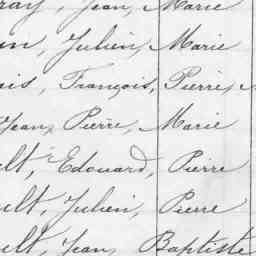 ray, Jean, Marie
en, Julien, Marie
ais, François, Pierre,
Jean, Pierre, Marie
ult, Edouard, Pierre
ult, Julien, Pierre
ult, Jean, Baptiste